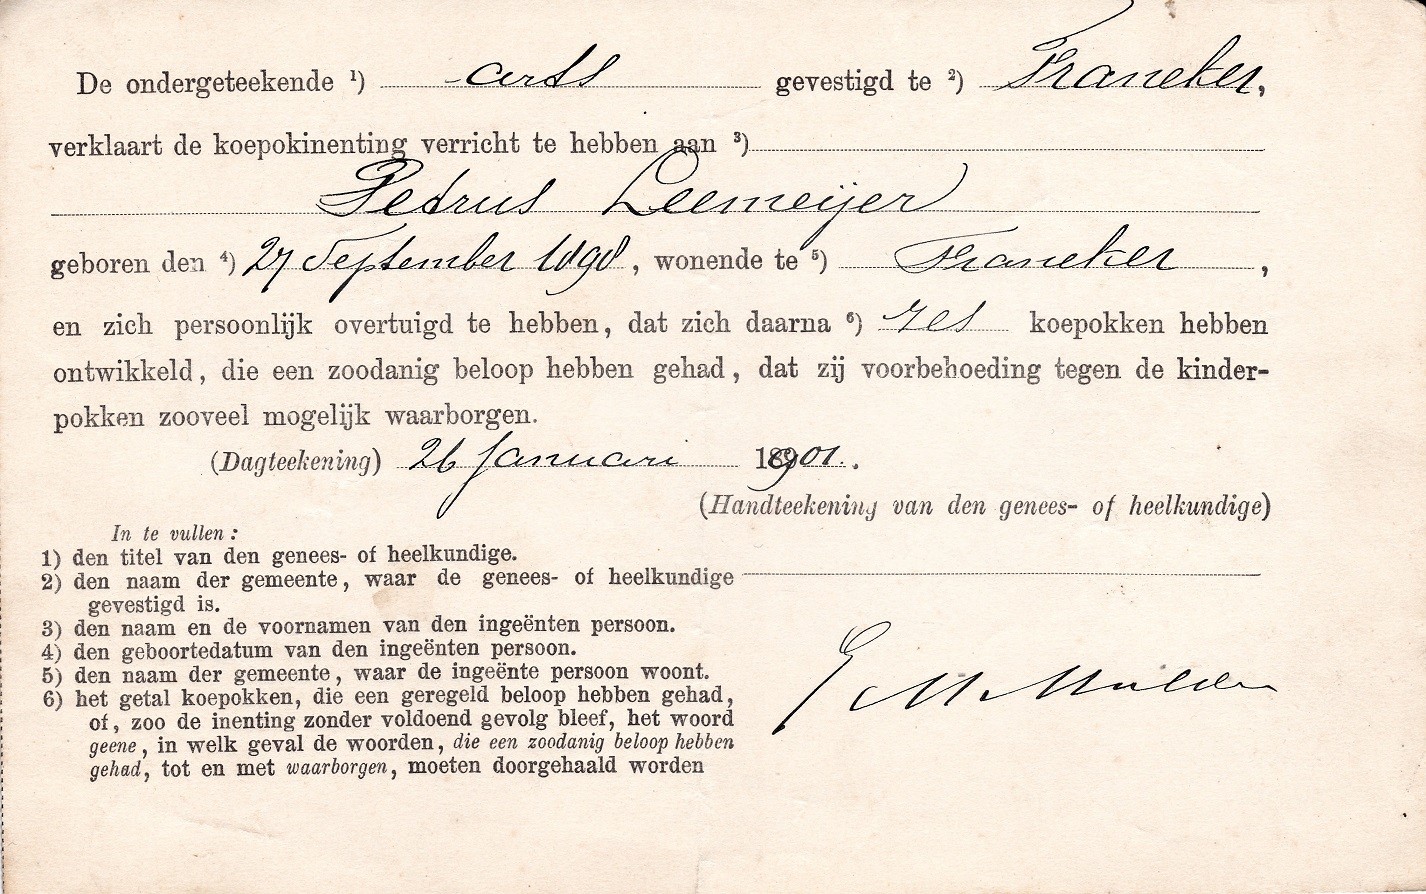 De ondergeteekende ¹) arts gevestigd te ²) Franeker,
verklaart de koepokinenting verricht te hebben aan ³)
Petrus Leemeijer
geboren den ⁴) 27 September 1898, wonende te ⁵) Franeker,
en zich persoonlijk overtuigd te hebben, dat zich daarna ⁶) zes koepokken hebben
ontwikkeld, die een zoodanig beloop hebben gehad, dat zij voorbehoeding tegen de kinder-
pokken zooveel mogelijk waarborgen.
(Dagteekening) 26 Januari 1901.
(Handteekening van den genees- of heelkundige)
In te vullen:
1) den titel van den genees- of heelkundige.
2) den naam der gemeente, waar de genees- of heelkundige
gevestigd is.
3) den naam en de voornamen van den ingeënten persoon.
4) den geboortedatum van den ingeënten persoon.
5) den naam der gemeente, waar de ingeënte persoon woont.
6) het getal koepokken, die een geregeld beloop hebben gehad,
of, zoo de inenting zonder voldoend gevolg bleef, het woord
geene, in welk geval de woorden, die een zoodanig beloop hebben
gehad, tot en met waarborgen, moeten doorgehaald worden
Mulder